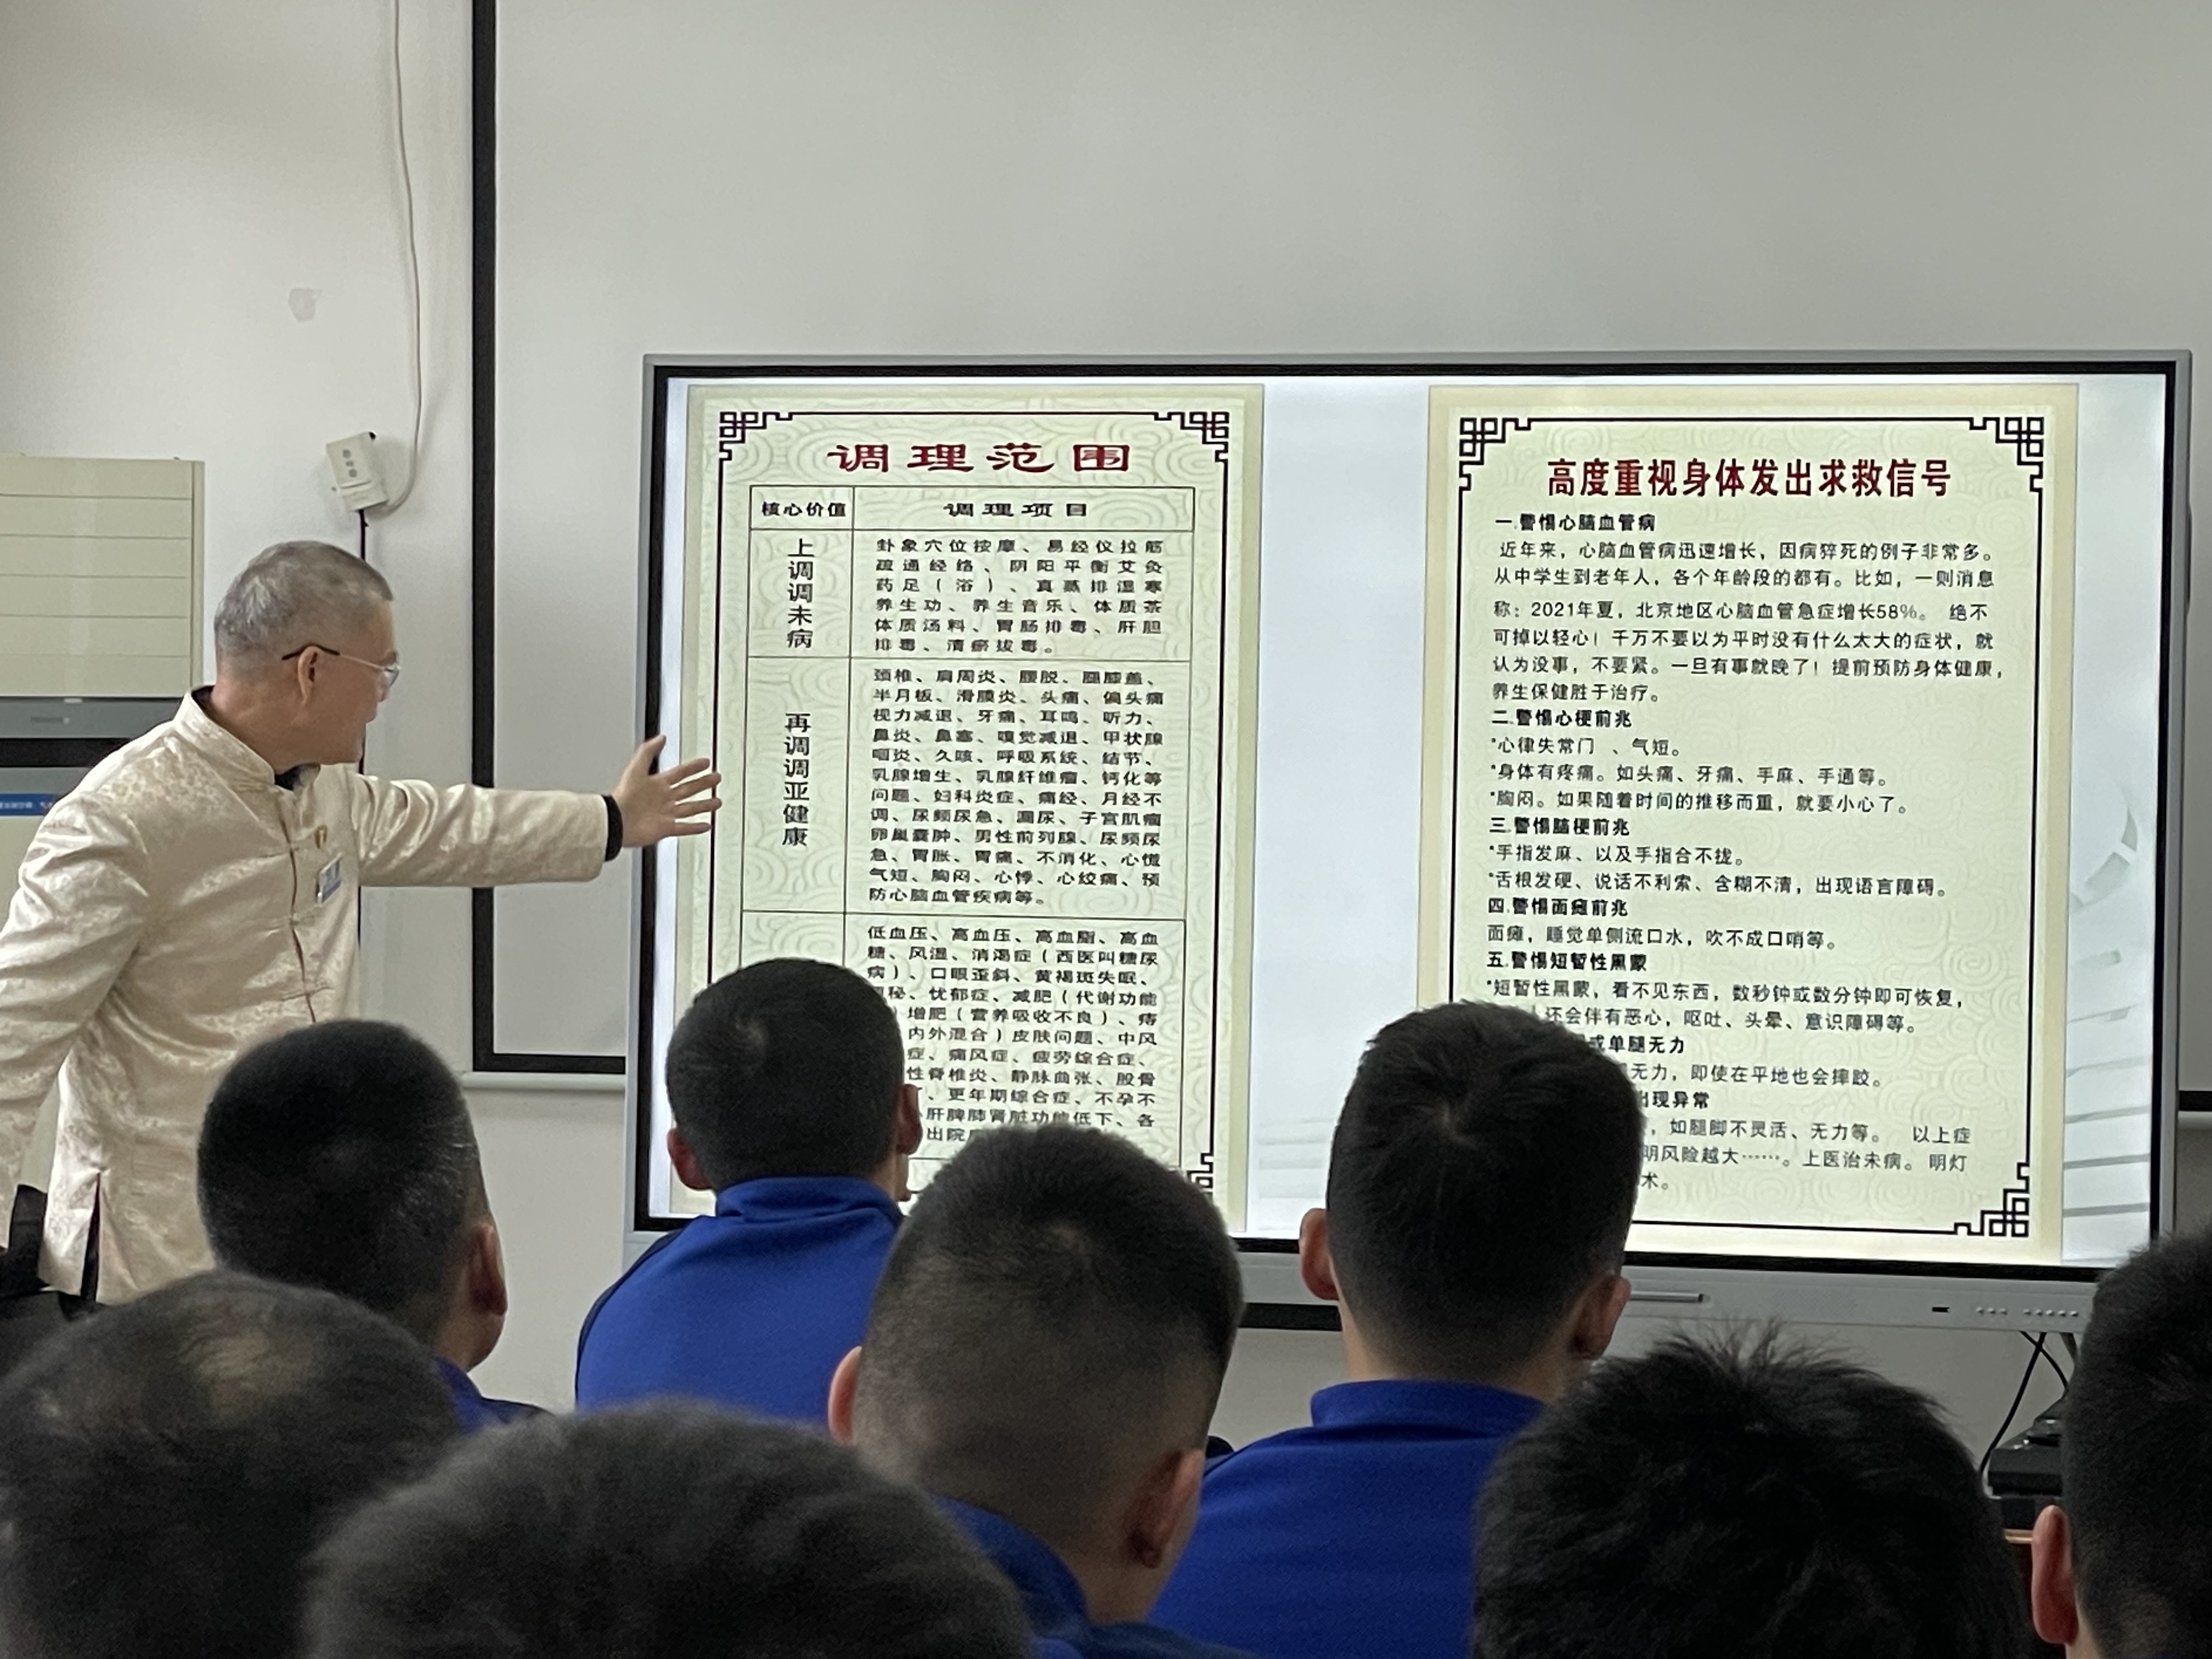 调理范围
核心价值
调理项目
上调调未病
卦象穴位按摩、易经仪拉筋
疏通经络、阴阳平衡艾灸
药足(浴)、真蒸排湿寒
养生功、养生音乐、体质茶
体质汤料、胃肠排毒、肝胆
排毒、清瘀拔毒。
再调调亚健康
颈椎、肩周炎、腰脱、腿膝盖、
半月板、滑膜炎、头痛、偏头痛
视力减退、牙痛、耳鸣、听力、
鼻炎、鼻塞、嗅觉减退、甲状腺
咽炎、久咳、呼吸系统、结节、
乳腺增生、乳腺纤维瘤、钙化等
问题、妇科炎症、痛经、月经不
调、尿频尿急、漏尿、子宫肌瘤
卵巢囊肿、男性前列腺、尿频尿
急、胃胀、胃痛、不消化、心慌
气短、胸闷、心悸、心绞痛、预
防心脑血管疾病等。
低血压、高血压、高血脂、高血
糖、风湿、消渴症(西医叫糖尿
病)、口眼歪斜、黄褐斑失眠、
秘、忧郁症、减肥(代谢功能
)增肥(营养吸收不良)、痔
内外混合)皮肤问题、中风
症、痛风症、疲劳综合症、
性脊椎炎、静脉曲张、股骨
、更年期综合症、不孕不
肝脾肺肾脏功能低下、各
出院
高度重视身体发出求救信号
一.警惕心脑血管病
近年来，心脑血管病迅速增长，因病猝死的例子非常多。
从中学生到老年人，各个年龄段的都有。比如，一则消息
称：2021年夏，北京地区心脑血管急症增长58%。 绝不
可掉以轻心！千万不要以为平时没有什么太大的症状，就
认为没事，不要紧。一旦有事就晚了！提前预防身体健康，
养生保健胜于治疗。
二.警惕心梗前兆
*心律失常门 、气短。
*身体有疼痛。如头痛、牙痛、手麻、手通等。
*胸闷。如果随着时间的推移而重，就要小心了。
三.警惕脑梗前兆
*手指发麻、以及手指合不拢。
*舌根发硬、说话不利索、含糊不清，出现语言障碍。
四.警惕面瘫前兆
面瘫，睡觉单侧流口水，吹不成口哨等。
五.警惕短暂性黑蒙
*短暂性黑蒙，看不见东西，数秒钟或数分钟即可恢复，
还会伴有恶心，呕吐、头晕、意识障碍等。
或单腿无力
无力，即使在平地也会摔跤。
出现异常
，如腿脚不灵活、无力等。 以上症
明风险越大……。上医治未病。明灯
术。